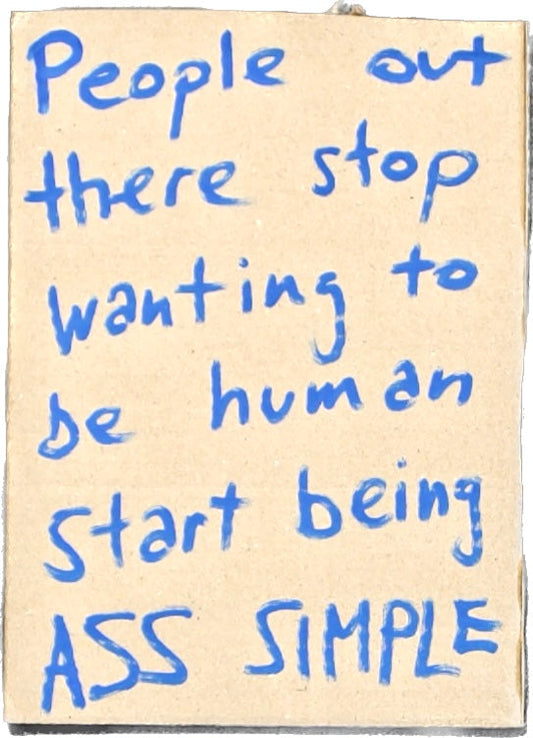 People out
there stop
wanting to
be human
start being
ASS SIMPLE